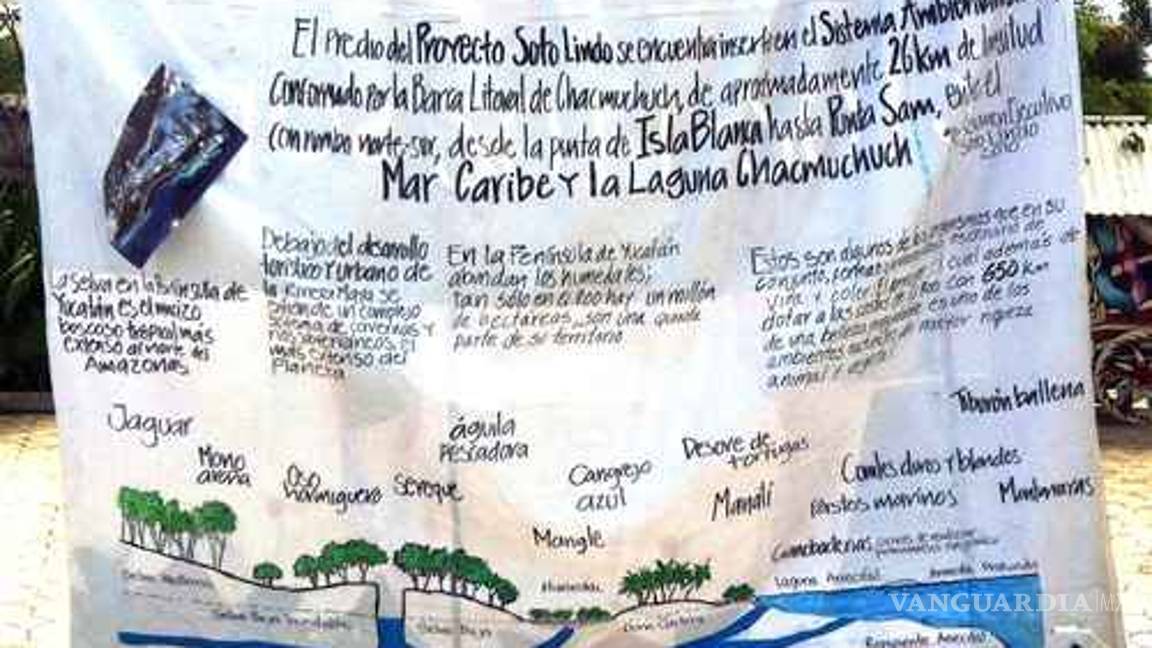 El Predio del Proyecto Soto Lindo se encuentra inserto en el Sistema Ambiental
Conformado por la Barra Litoral de Chacmuchuch, de aproximadamente 26km de longitud
Con rumbo norte-sur, desde la punta de Isla Blanca hasta Punta Sam, entre el
Mar Caribe Y la Laguna Chacmuchuch
La selva en la Península de
Yucatán es el macizo
boscoso tropical más
extenso al norte del
Amazonas
Debajo del desarrollo
turístico y urbano de
la Riviera Maya se
extiende un complejo
sistema de cavernas y
ríos subterráneos, el
más extenso del
Planeta
En la Península de Yucatán
abundan los humedales;
tan sólo en Q. Roo hay un millón
de hectáreas, son una
parte de su territorio
Estos son algunos de los que en su
conjunto
de una
ambientes
animal y
650 km
es uno de los
mayor riqueza
Tiburón ballena
Jaguar
Mono
araña
Oso
hormiguero
Sereque
águila
pescadora
Cangrejo
azul
Mangle
Desove de
tortugas
Manatí
Corales duros y blandos
Pastos marinos
Mantarrayas
Cianobacterias
Selva Mediana
Selva Baja Inundable
Selva Baja
Humedal
Duna Costera
Laguna Arrecifal
Arrecife Profundo
Rompiente Arrecifal
VANGUARDIA|MX